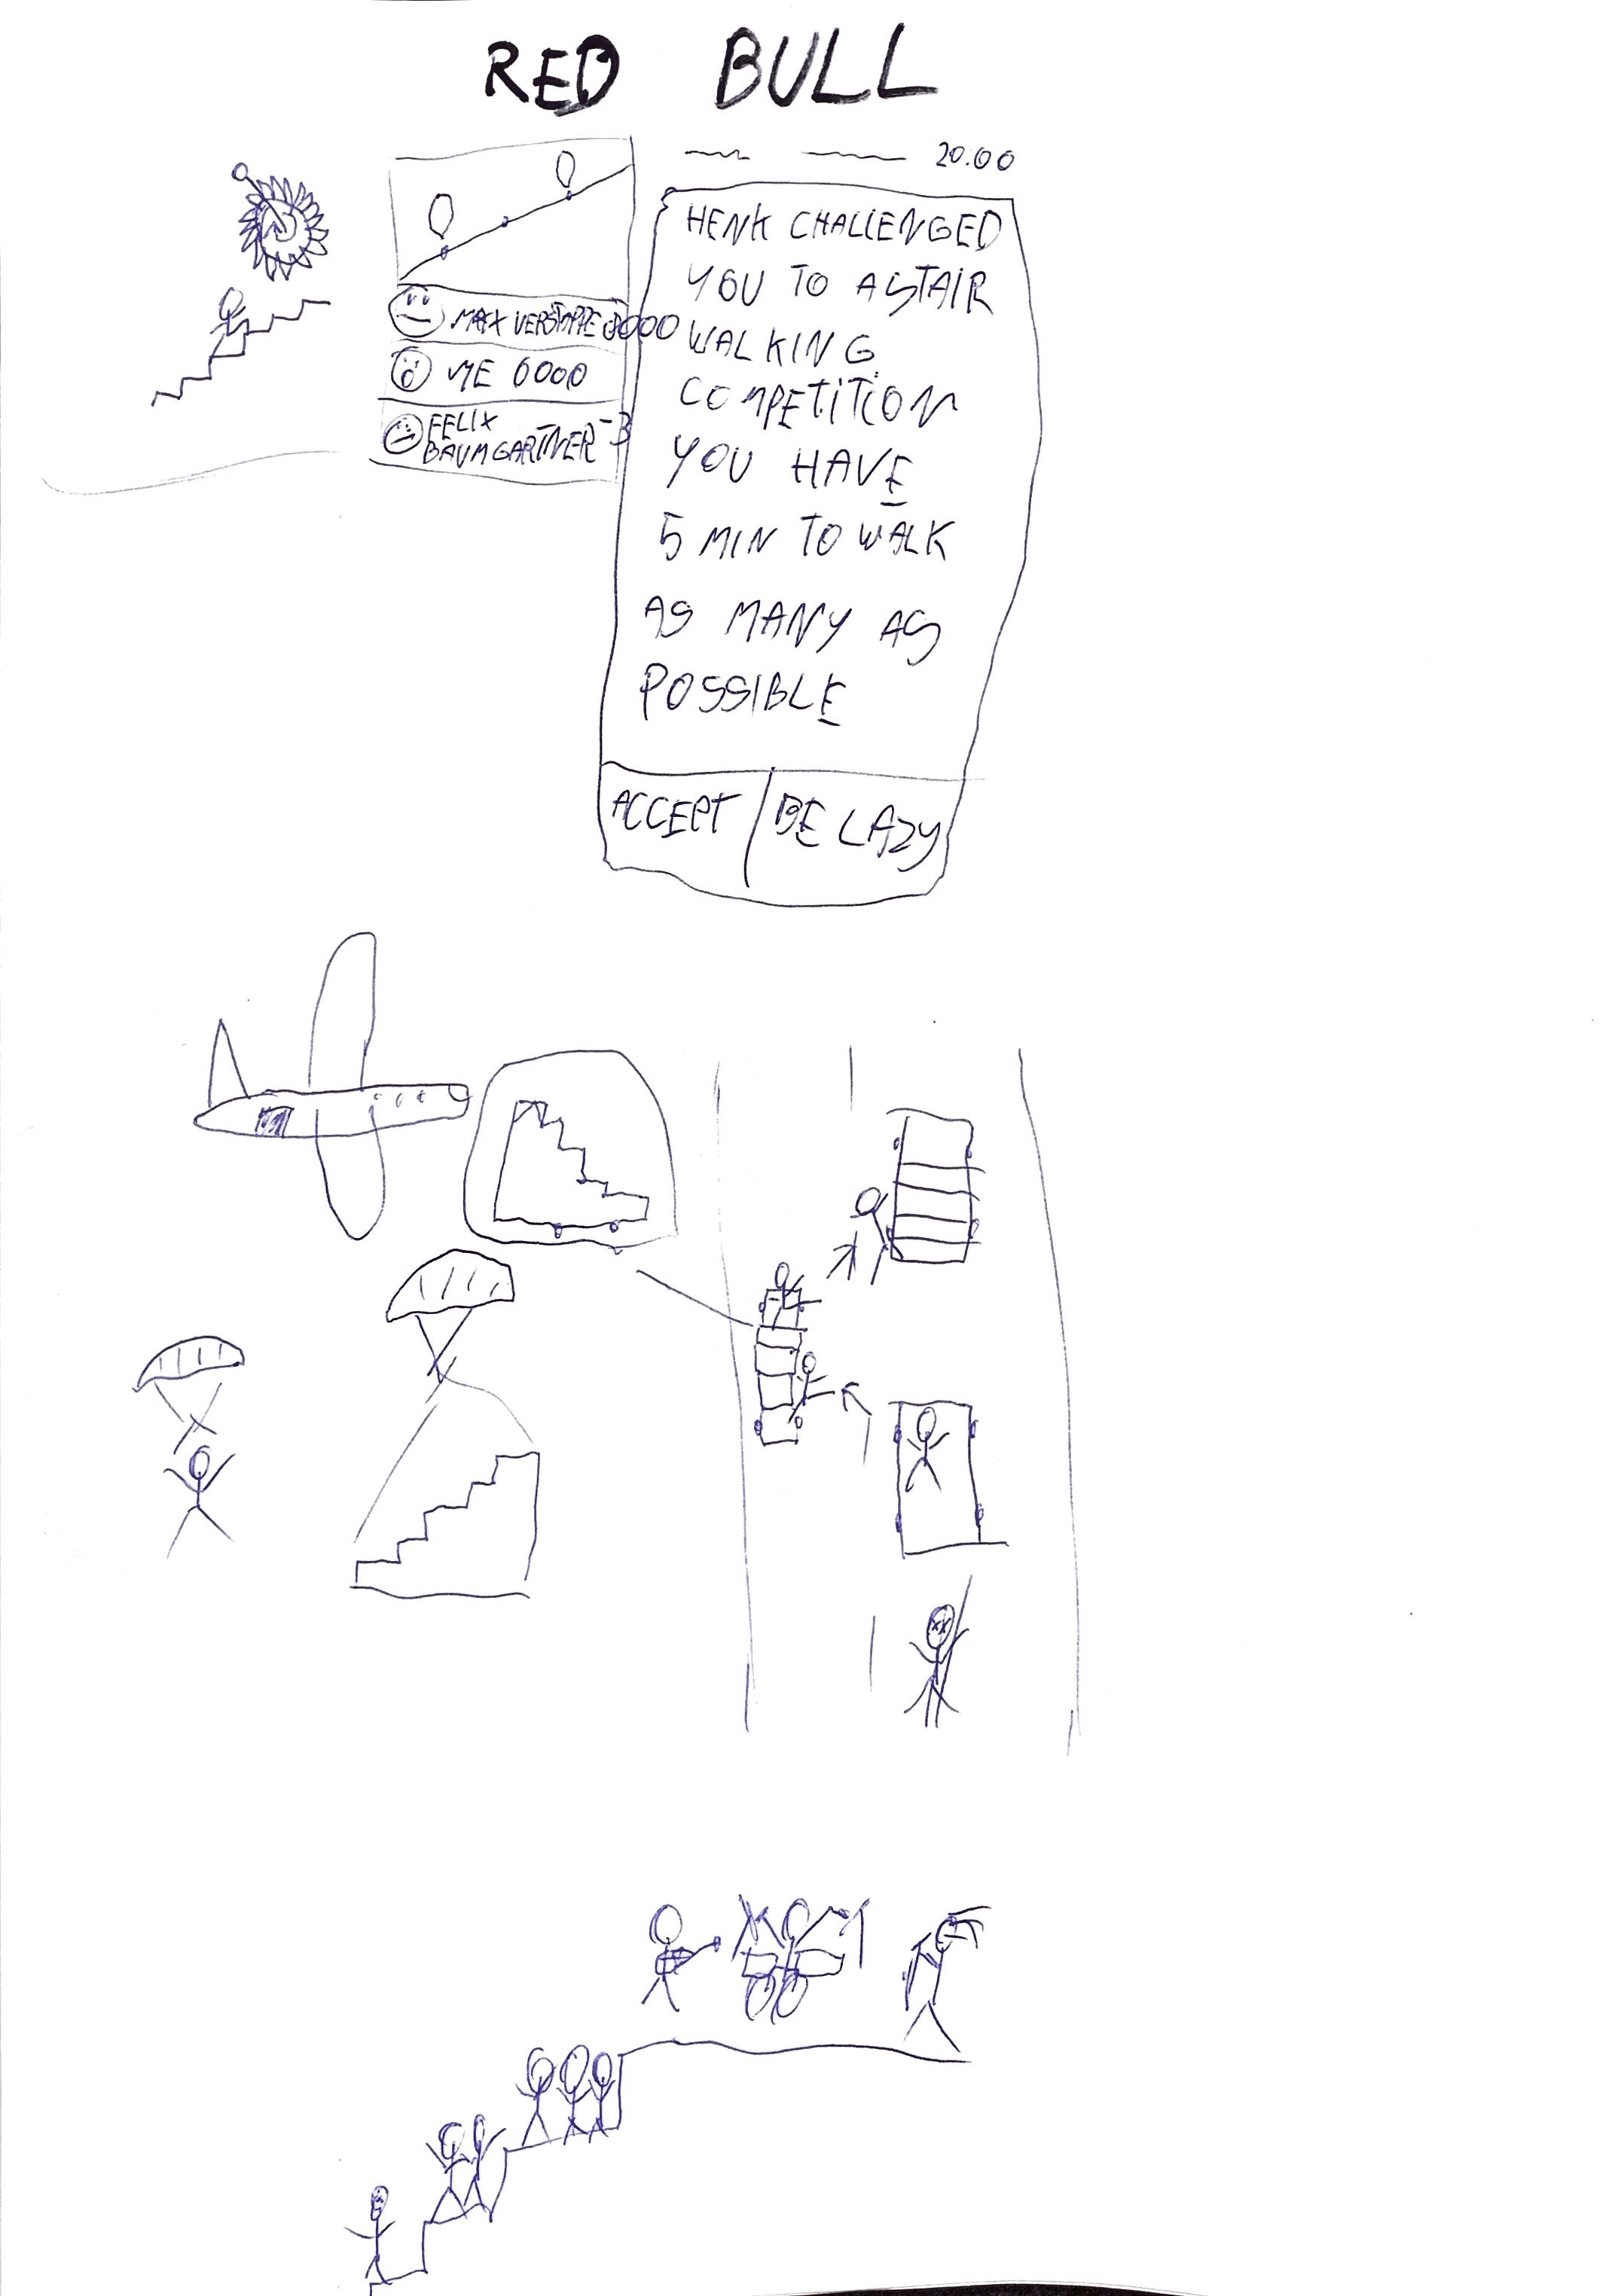 RED BULL
20.00
MAX VERSTAPPE 9000
ME 6000
FELIX
BAUMGARTNER -3
HENK CHALLENGED
YOU TO A STAIR
WALKING
COMPETITION
YOU HAVE
5 MIN TO WALK
AS MANY AS
POSSIBLE
ACCEPT / BE LAZY